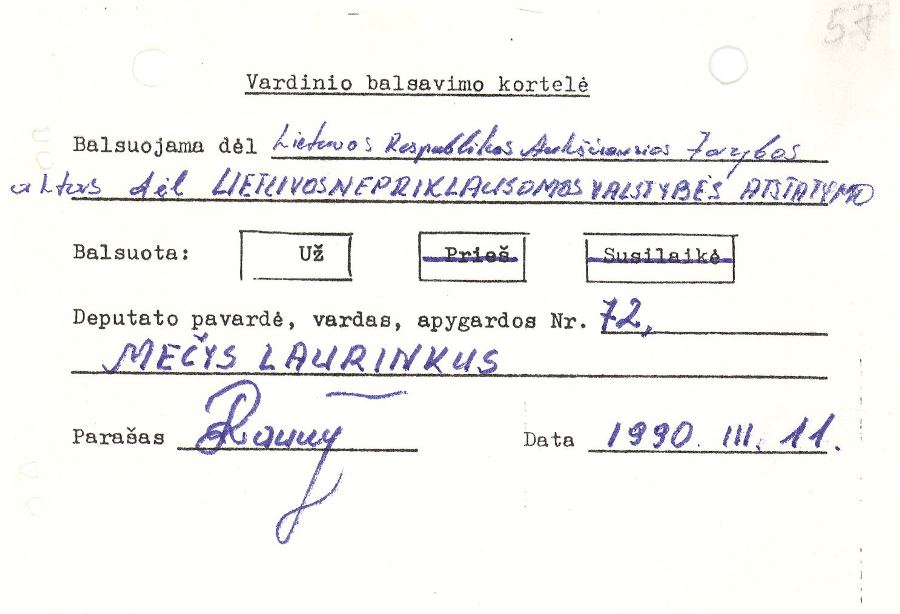 57
Vardinio balsavimo kortelė
Balsuojama dėl Lietuvos Respublikos Aukščiausios Tarybos
aktas dėl LIETUVOS NEPRIKLAUSOMOS VALSTYBĖS ATSTATYMO
Balsuota: Už Prieš Susilaikė
Deputato pavardė, vardas, apygardos Nr. 72,
MEČYS LAURINKUS
Parašas Data 1990. III. 11.